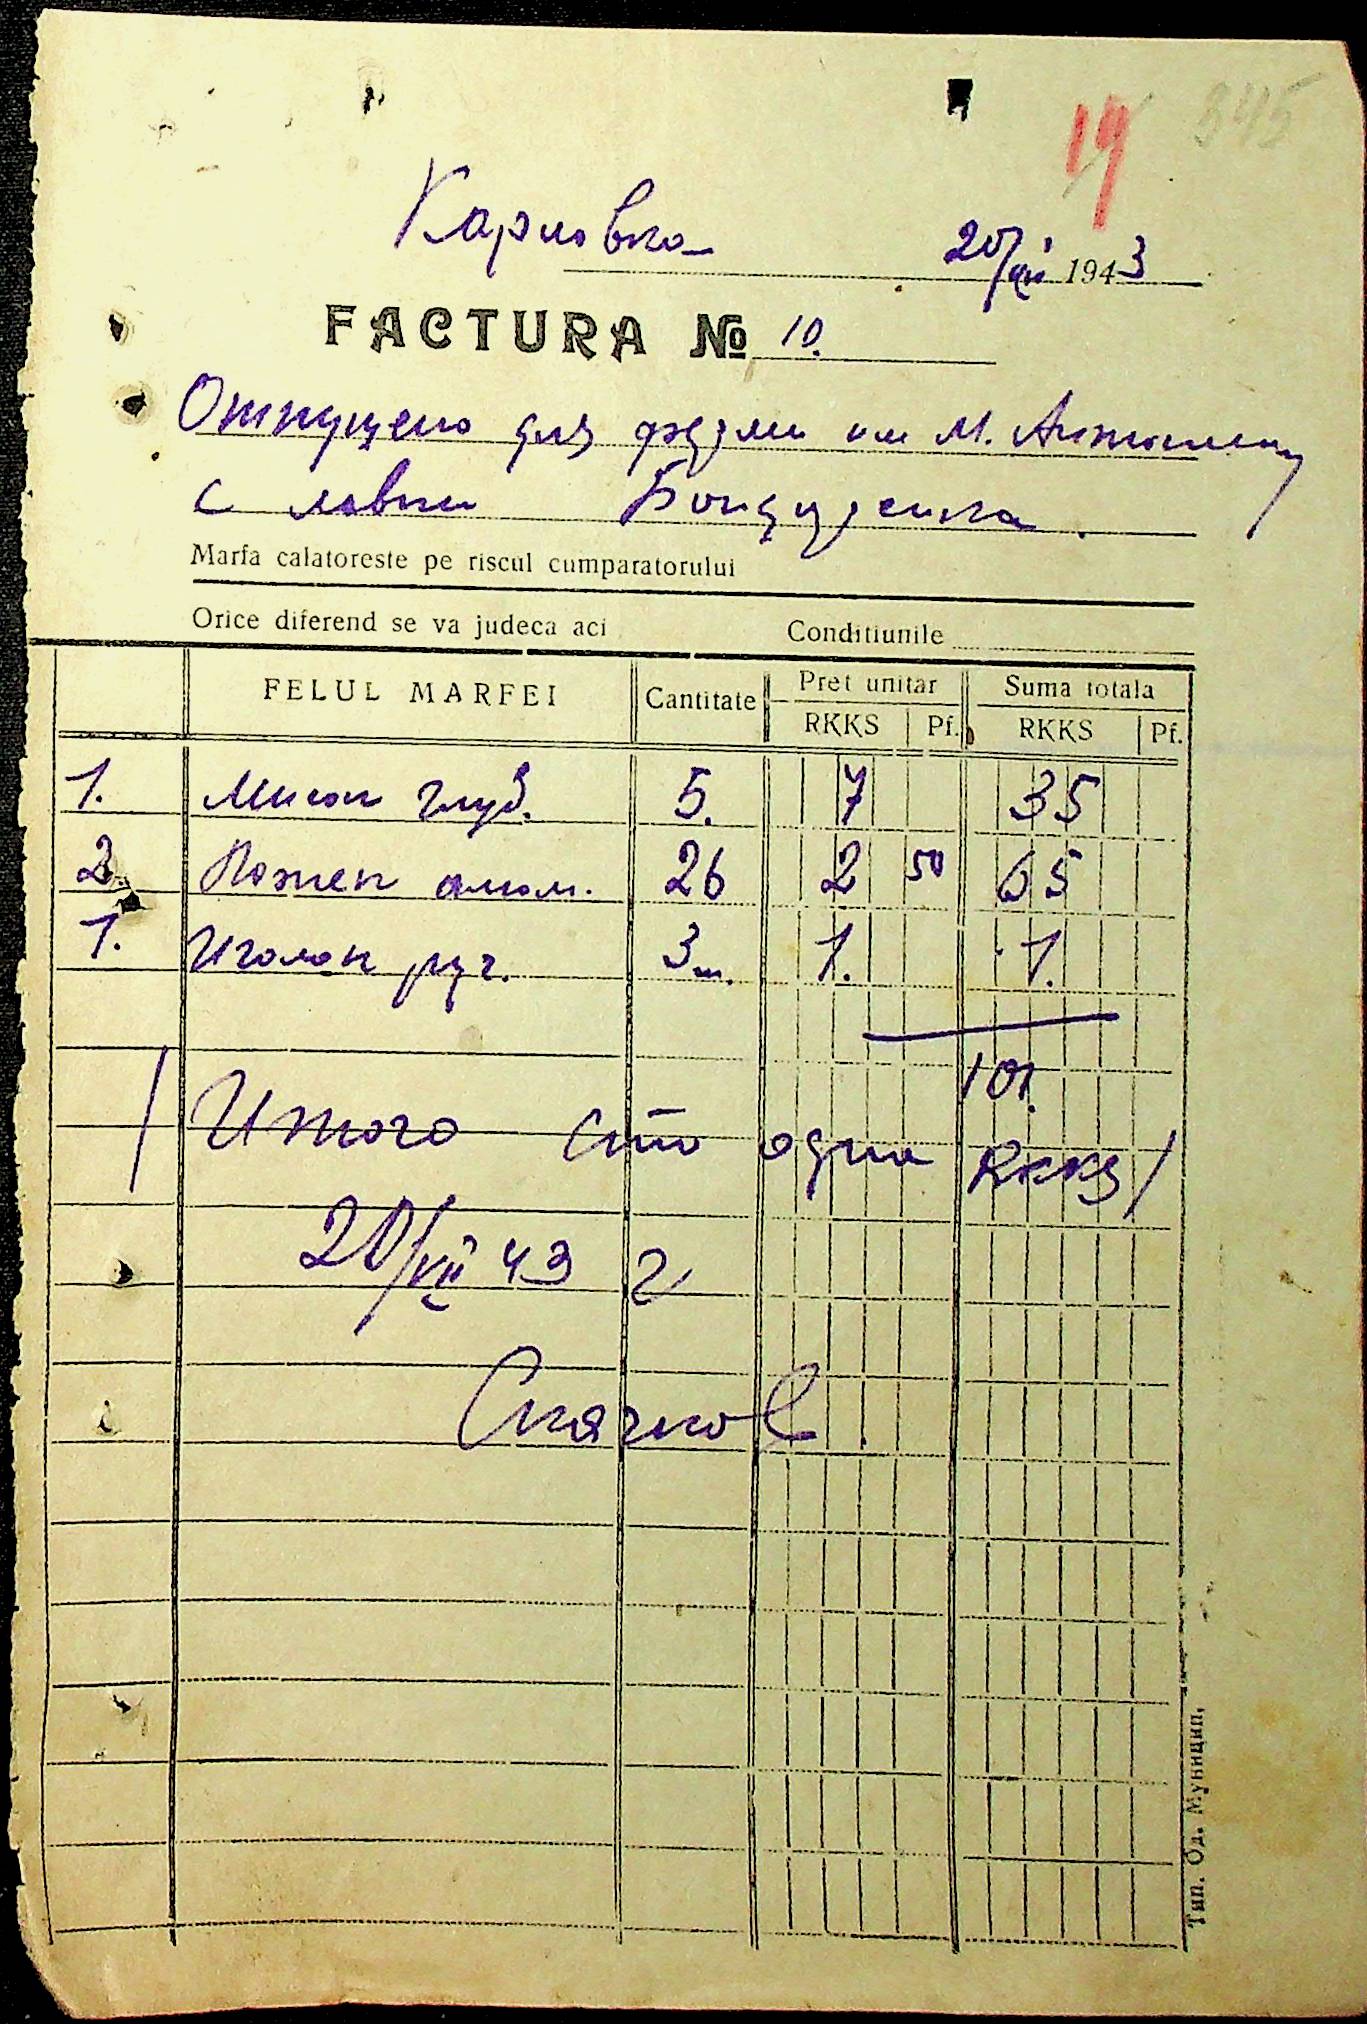 19 345
Карловка 20/VII 1943
FACTURA № 10.
Отпущено для фермы им М. Антонеску
с лавки Бондаренка
Marfa calatoreste pe riscul cumparatorului
Orice diferend se va judeca aci Conditiunile
FELUL MARFEI Cantitate Pret unitar Suma totala
RKKS Pf. RKKS Pf.
1. Мисок глуб. 5. 7 35
2 Ложек алюм. 26 2 50 65
1. Иголок руч. 3 ш. 1. 1.
101.
Итого сто одна RKKS
20/VII 43 г
Скачков
Тип. Од. Муницип.